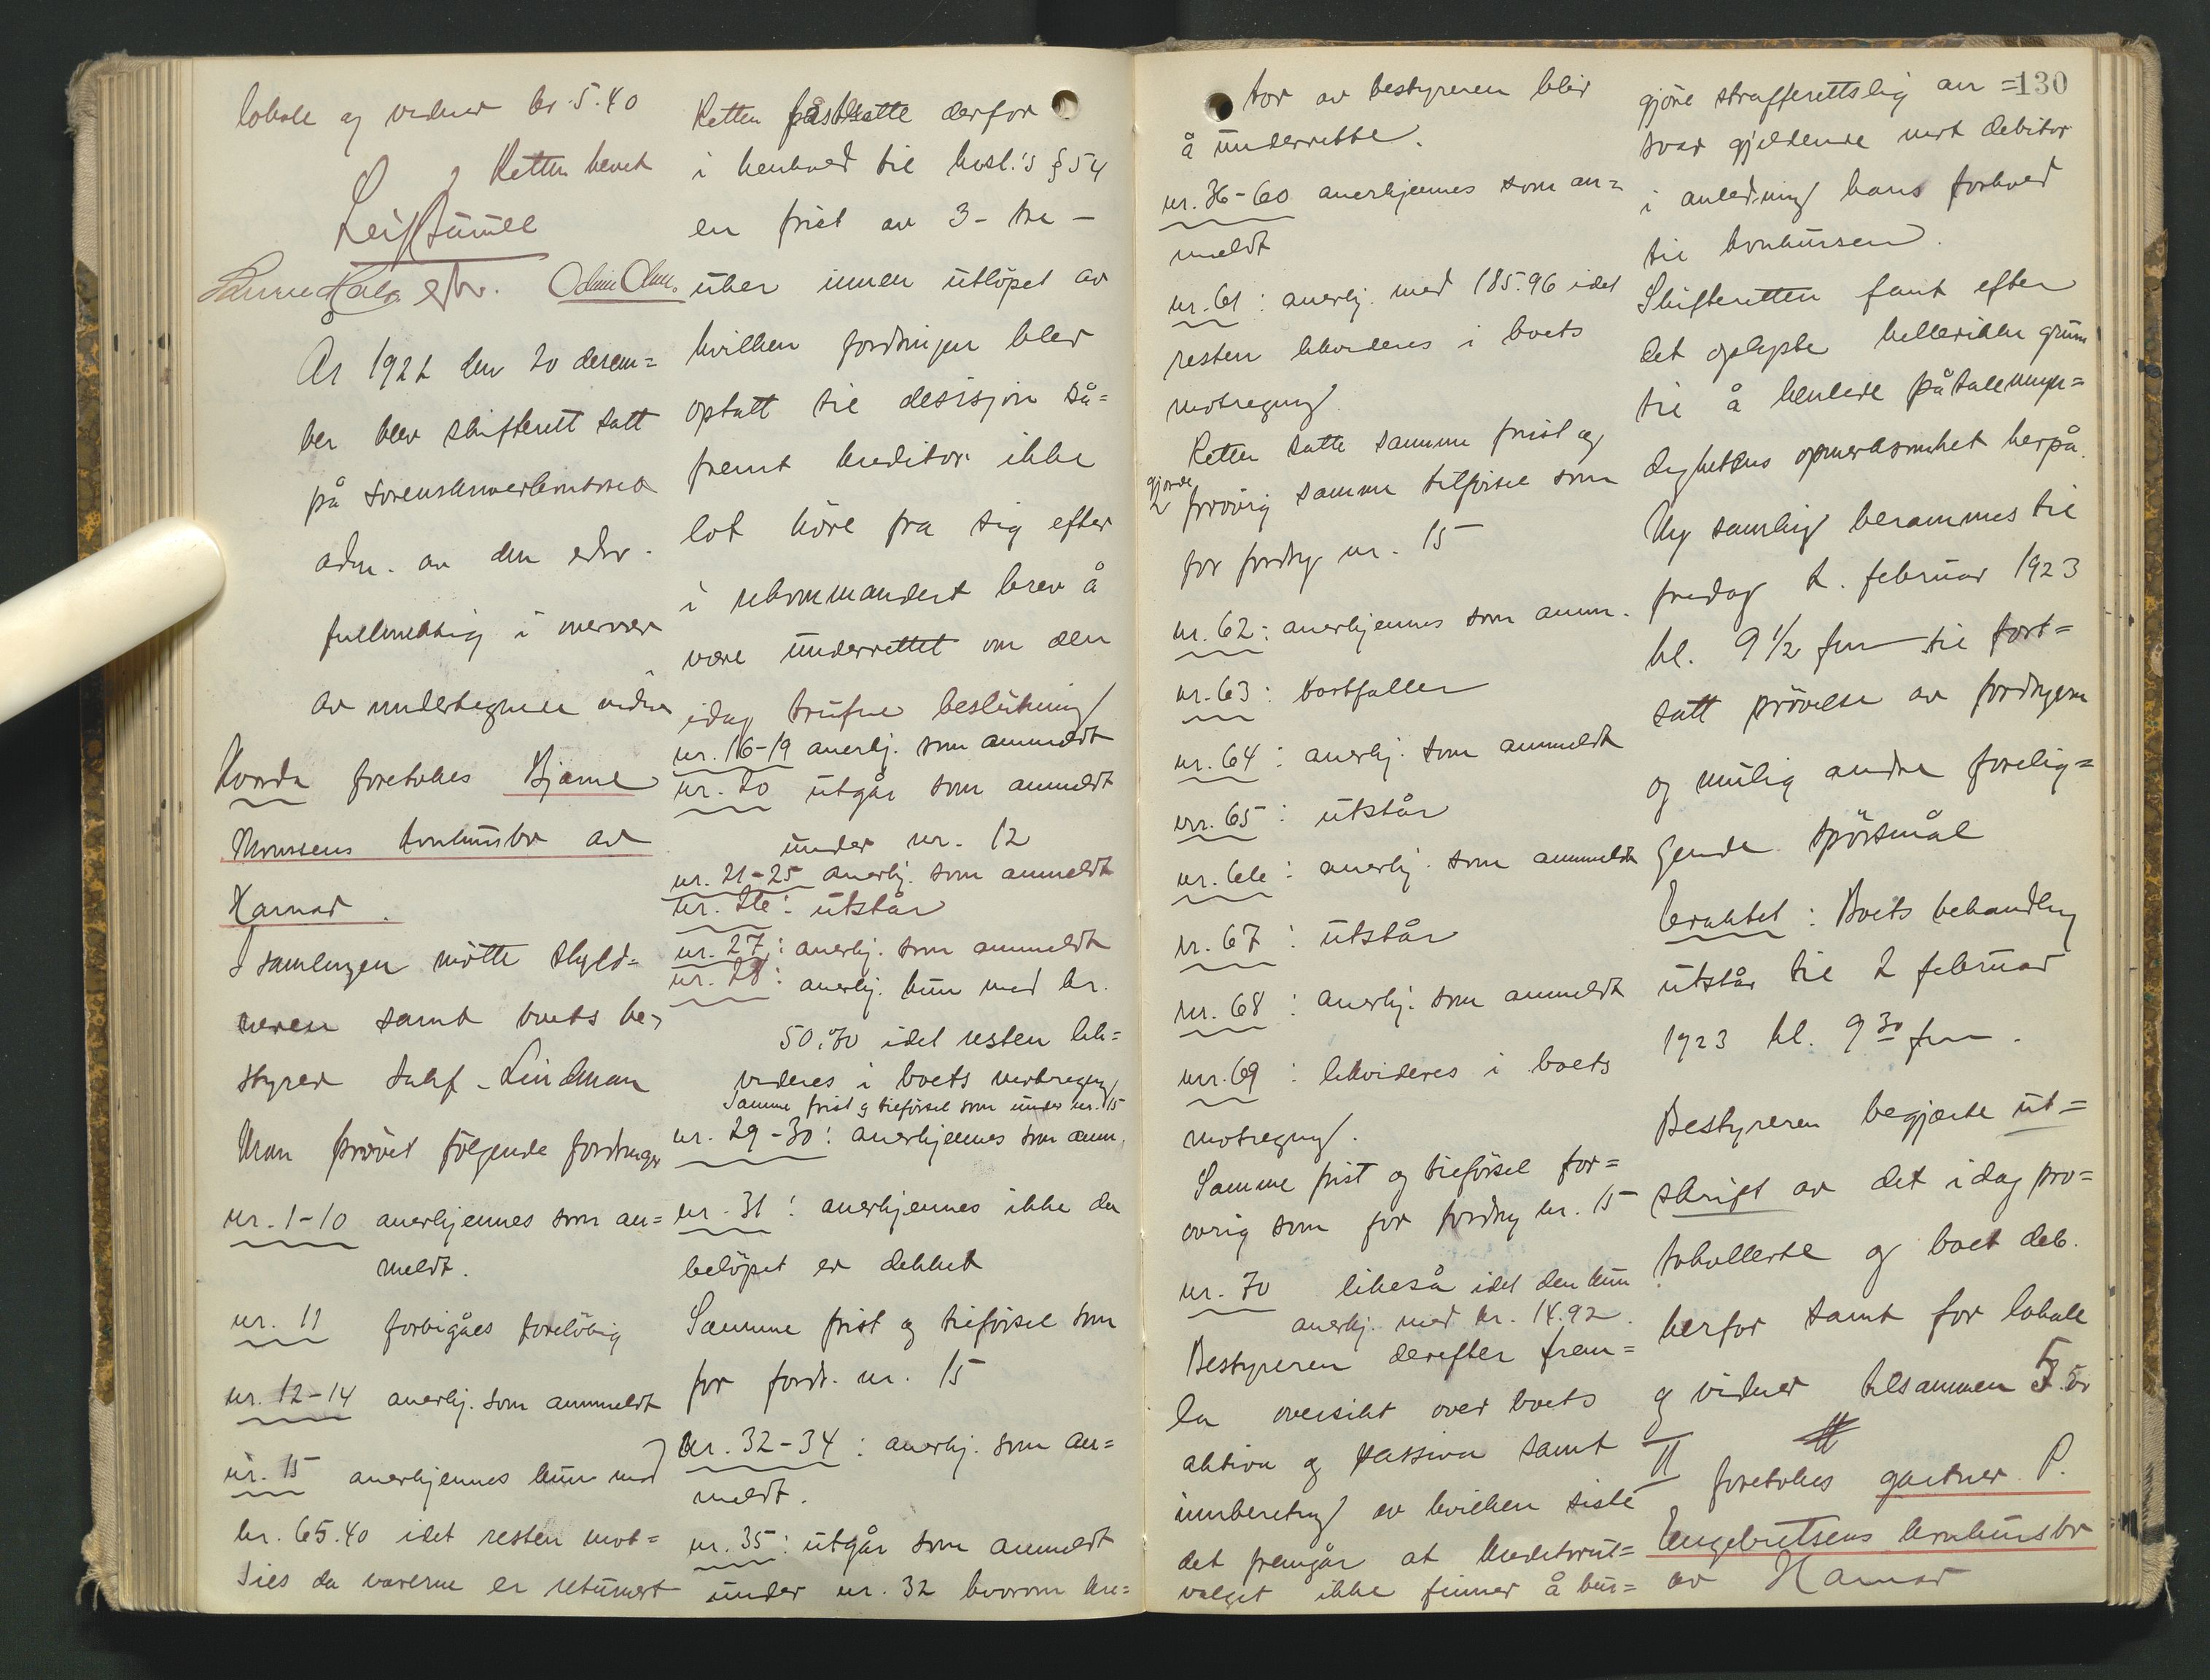 lokale og vidner kr. 5.40
Retten hevet
År 1922 den 20 desem=
ber blev skifterett satt
på sorenskriverkontoret
adm. av den edsv.
fullmektig i nærvær
av undertegnede vidner
Hvorda foretokes Bjarne
konkursbo av
Hamar.
I samlingen møtte skyld=
neren samt boets be=
styrer sakf. Lindman
Man prøvet følgende fordringer
nr. 1-10 anerkjennes som an=
meldt.
nr. 11 forbigåes foreløbig
nr. 12-14 anerkj. som anmeldt
nr. 15 anerkjennes kun med
kr. 65.40 idet resten mot=
sies da varerne er returnert
Retten fastsatte derfor
i henhold til kksl.'s § 54
en frist av 3 - tre -
uker innen utløpet av
hvilken fordringen blev
optatt til desisjon så=
fremt kreditor ikke
lot høre fra sig efter
i rekommandert brev å
være underrettet om den
idag trufne beslutning
nr. 16-19 anerkj. som anmeldt
nr. 20 utgår som anmeldt
under nr. 12
nr. 21-25 anerkj. som anmeldt
nr. 26: utstår
nr. 27: anerkj. som anmeldt
nr. 28: anerkj. kun med kr.
50.70 idet resten lik=
videres i boets motregning
Samme frist og tilførsel som under nr. 15
nr. 29-30: anerkjennes som anm.
nr. 31: anerkjennes ikke da
beløpet er dekket
Samme frist og tilførsel som
for fordr. nr. 15
Nr. 32-34: anerkj. som an=
meldt.
nr. 35: utgår som anmeldt
under nr. 32 hvorom kre=
130
tor av bestyreren blir
å underrette.
nr. 36-60 anerkjennes som an=
meldt
nr. 61: anerkj. med 185.96 idet
resten likvideres i boets
motregning
Retten satte samme frist og
gjorde
forøvrig samme tilførsel som
for fordrg nr. 15
nr. 62: anerkjennes som anm.
nr. 63: bortfaller
nr. 64: anerkj. som anmeldt
nr. 65: utstår
nr. 66: anerkj. som anmeldt
nr. 67: utstår
nr. 68: anerkj. som anmeldt
nr. 69: likvideres i boets
motregning.
Samme frist og tilførsel for=
øvrig som for fordrg nr. 15
nr. 70 likeså idet den kun
anerkj. med kr. 14.92.
Bestyreren derefter frem=
la oversikt over boets
aktiva og passiva samt
innberetng av hvilken siste
det fremgår at kreditorut=
valget ikke finner å bur=
gjøre strafferettslig an=
svar gjeldende mot debitor
i anledning hans forhold
til konkursen.
Skifteretten fant efter
det oplyste heller ikke grunn
til å henlede påtalemyn=
dighetens opmerksomhet herpå.
Ny samling berammes til
fredag 2. februar 1923
kl. 9 1/2 fm til fort=
satt prøvelse av fordrgene
og mulig andre forelig=
gende spørsmål
Eraktet: Boets behandling
utstår til 2 februar
1923 kl. 9 30 fm.
Bestyreren begjærte ut=
skrift av det idag pro=
tokollerte og boet deb.
herfor samt for lokale
og vidner tilsammen
II
foretokes gartner P.
Engebretsens konkursbo
av Hamar